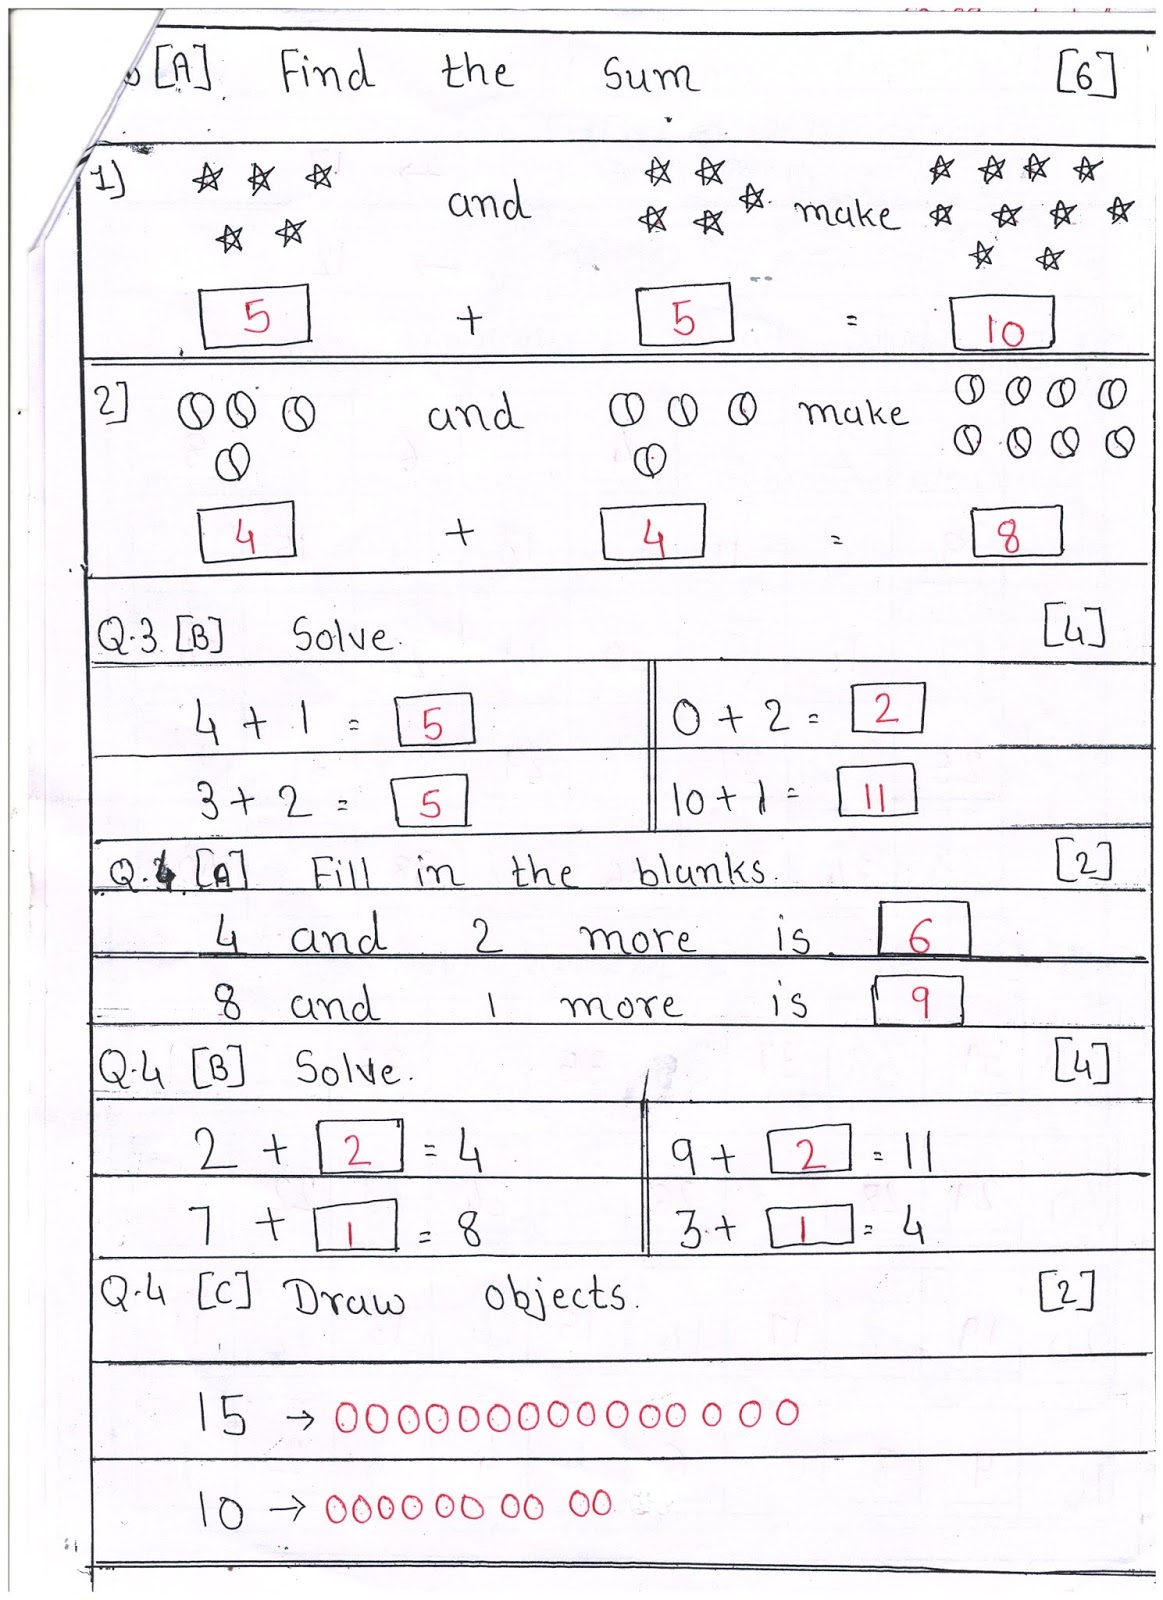 [A] Find the Sum [6]
1) and make
5 + 5 = 10
2] and make
4 + 4 = 8
Q.3 [B] Solve. [4]
4 + 1 = 5 0 + 2 = 2
3 + 2 = 5 10 + 1 = 11
Q.4 [A] Fill in the blanks. [2]
4 and 2 more is 6
8 and 1 more is 9
Q.4 [B] Solve. [4]
2 + 2 = 4 9 + 2 = 11
7 + 1 = 8 3 + 1 = 4
Q.4 [C] Draw objects. [2]
15 →
10 →